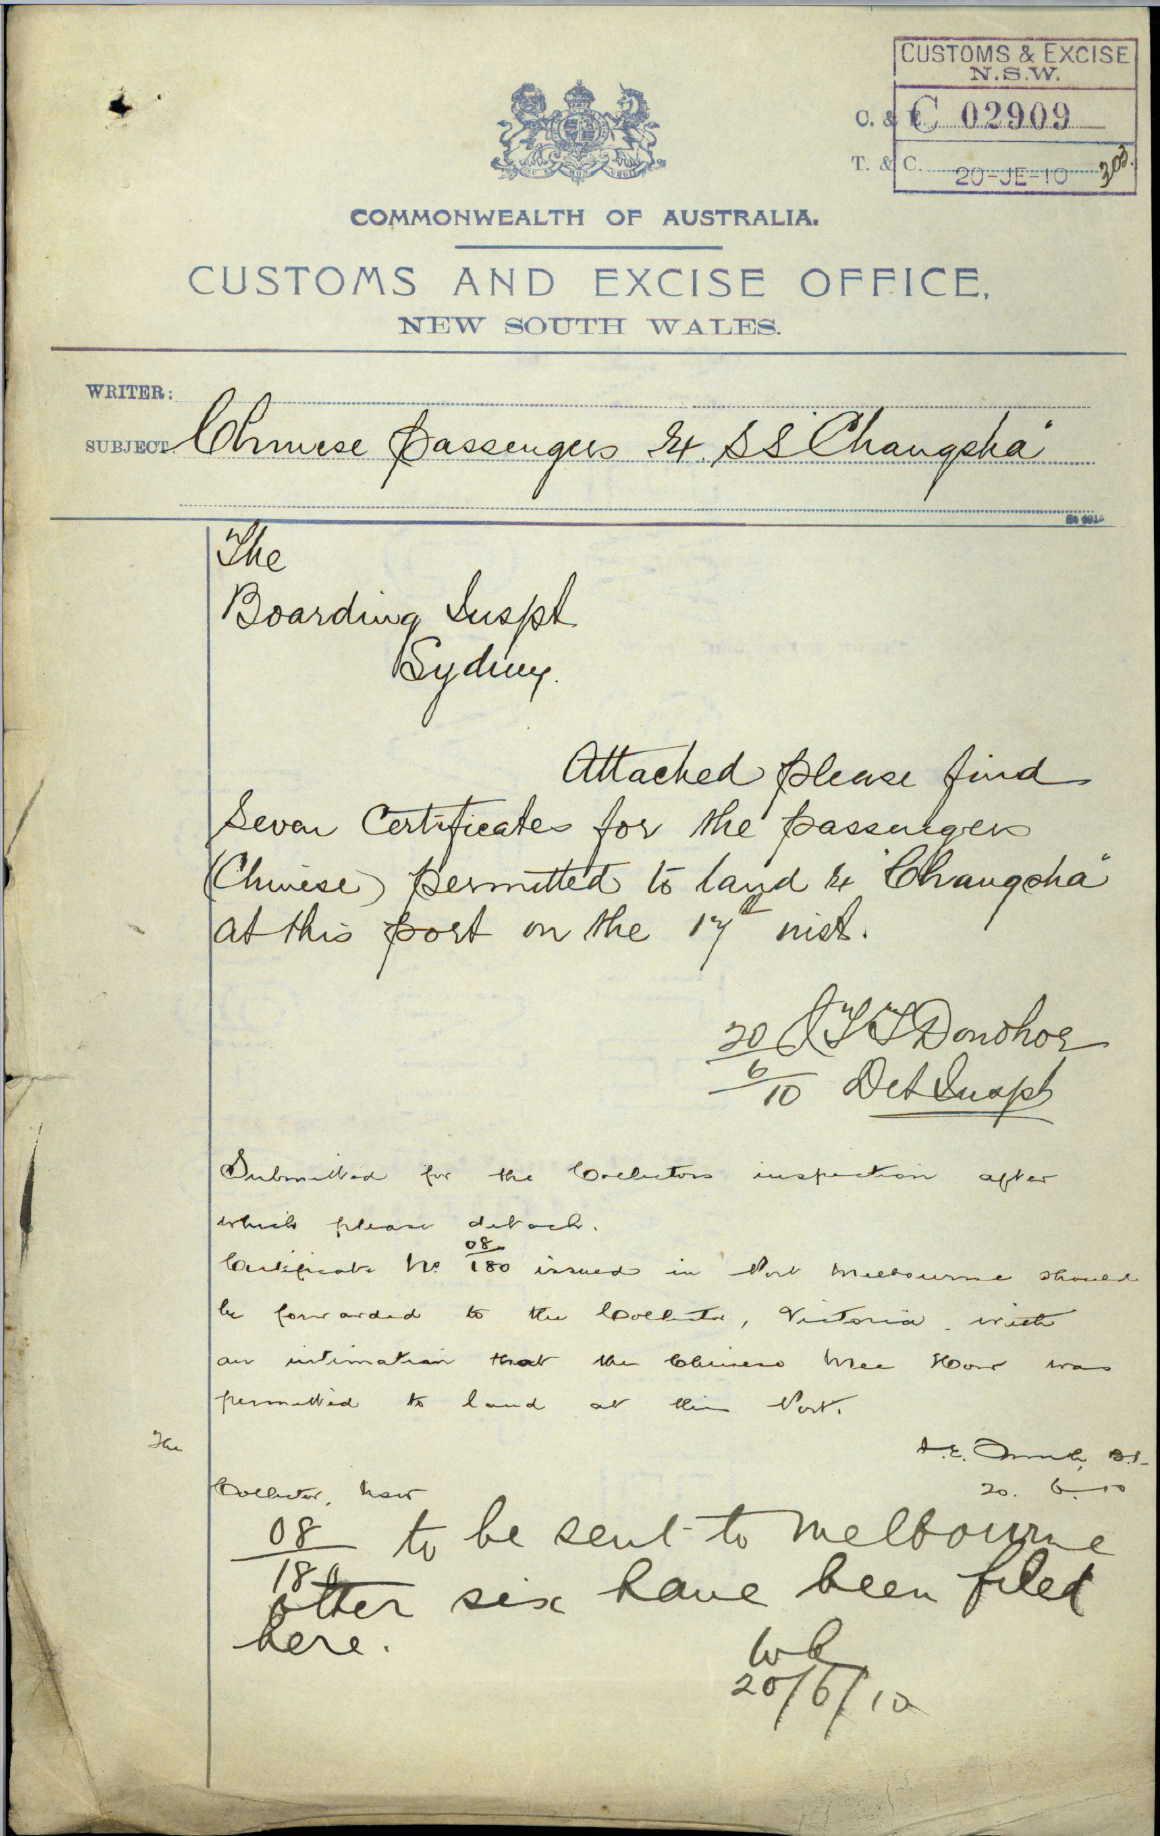 CUSTOMS & EXCISE
N.S.W.
C. & E. C 02909
T. & C. 20-JE-10 303.
COMMONWEALTH OF AUSTRALIA.
CUSTOMS AND EXCISE OFFICE,
NEW SOUTH WALES.
WRITER:
SUBJECT Chinese passengers ex. SS "Changsha"
The
Boarding Inspt
Sydney.
Attached please find
Seven Certificates for the passengers
(Chinese) permitted to land ex "Changsha"
at this port on the 17th inst.
20/6/10 J T T Donohoe
Det Inspt
Submitted for the Collectors inspection after
which please detach.
Certificate No. 08/180 issued in Port Melbourne should
be forwarded to the Collector, Victoria. with
an intimation that the Chinese Mee How was
permitted to land at this Port.
The
Collector, NSW
20. 6. 10
08/180 to be sent to Melbourne
other six have been filed
here.
20/6/10